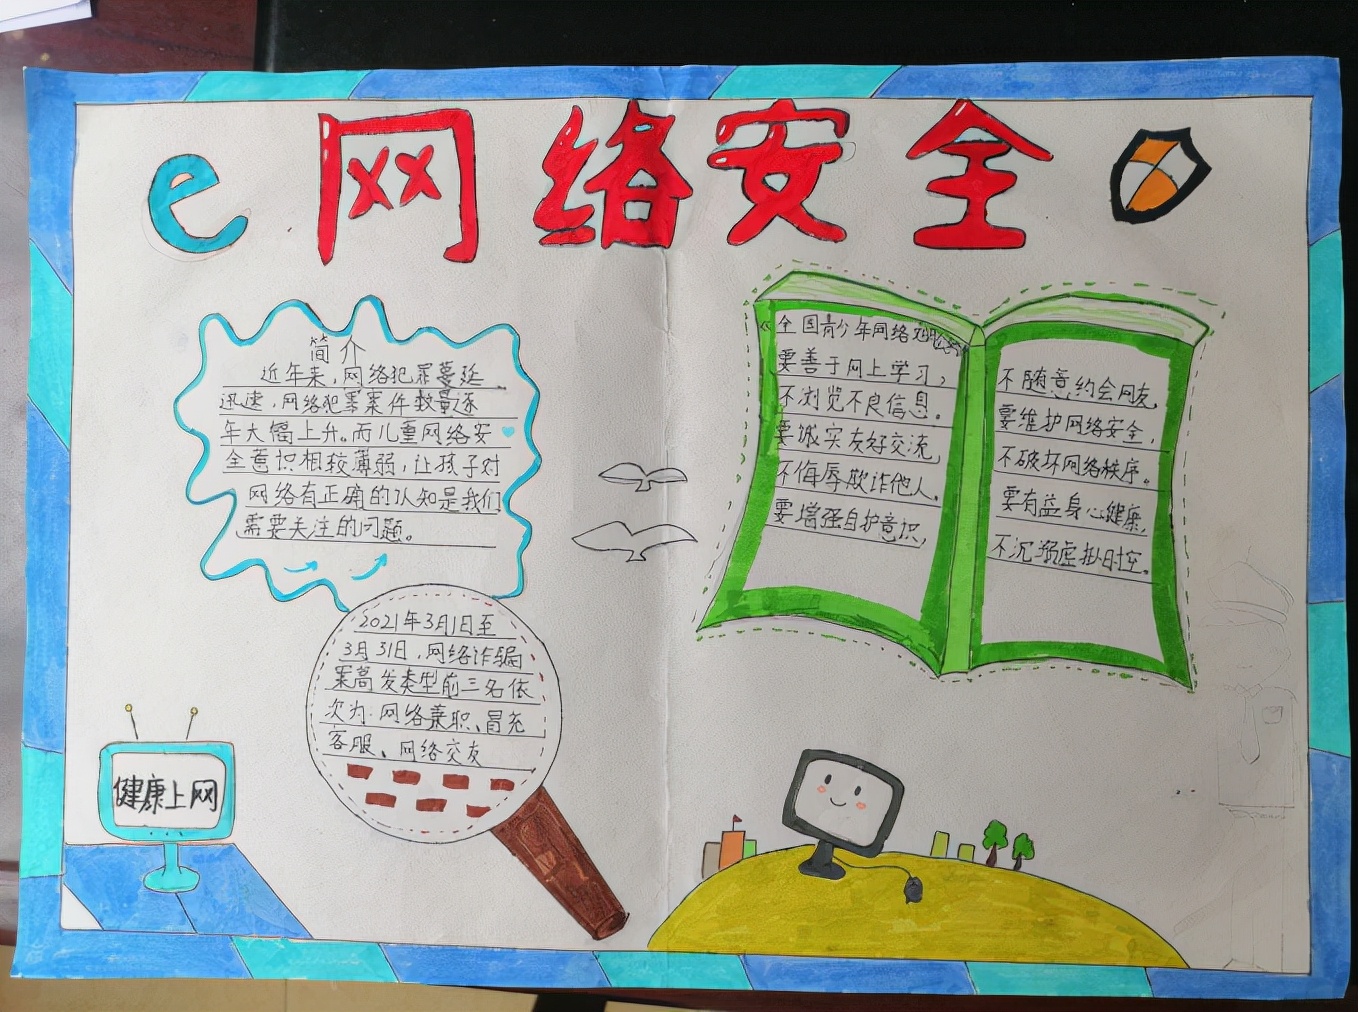 e 网络安全
简介
近年来,网络犯罪蔓延
迅速,网络犯罪案件数量逐
年大幅上升。而儿童网络安
全意识相较薄弱,让孩子对
网络有正确的认知是我们
需要关注的问题。
2021年3月1日至
3月31日,网络诈骗
案高发类型前三名依
次为:网络兼职、冒充
客服、网络交友
健康上网
《全国青少年网络
要善于网上学习,
不浏览不良信息。
要诚实友好交流,
不侮辱欺诈他人。
要增强自护意识,
不随意约会网友,
要维护网络安全,
不破坏网络秩序。
要有益身心健康,
不沉溺虚拟时空。